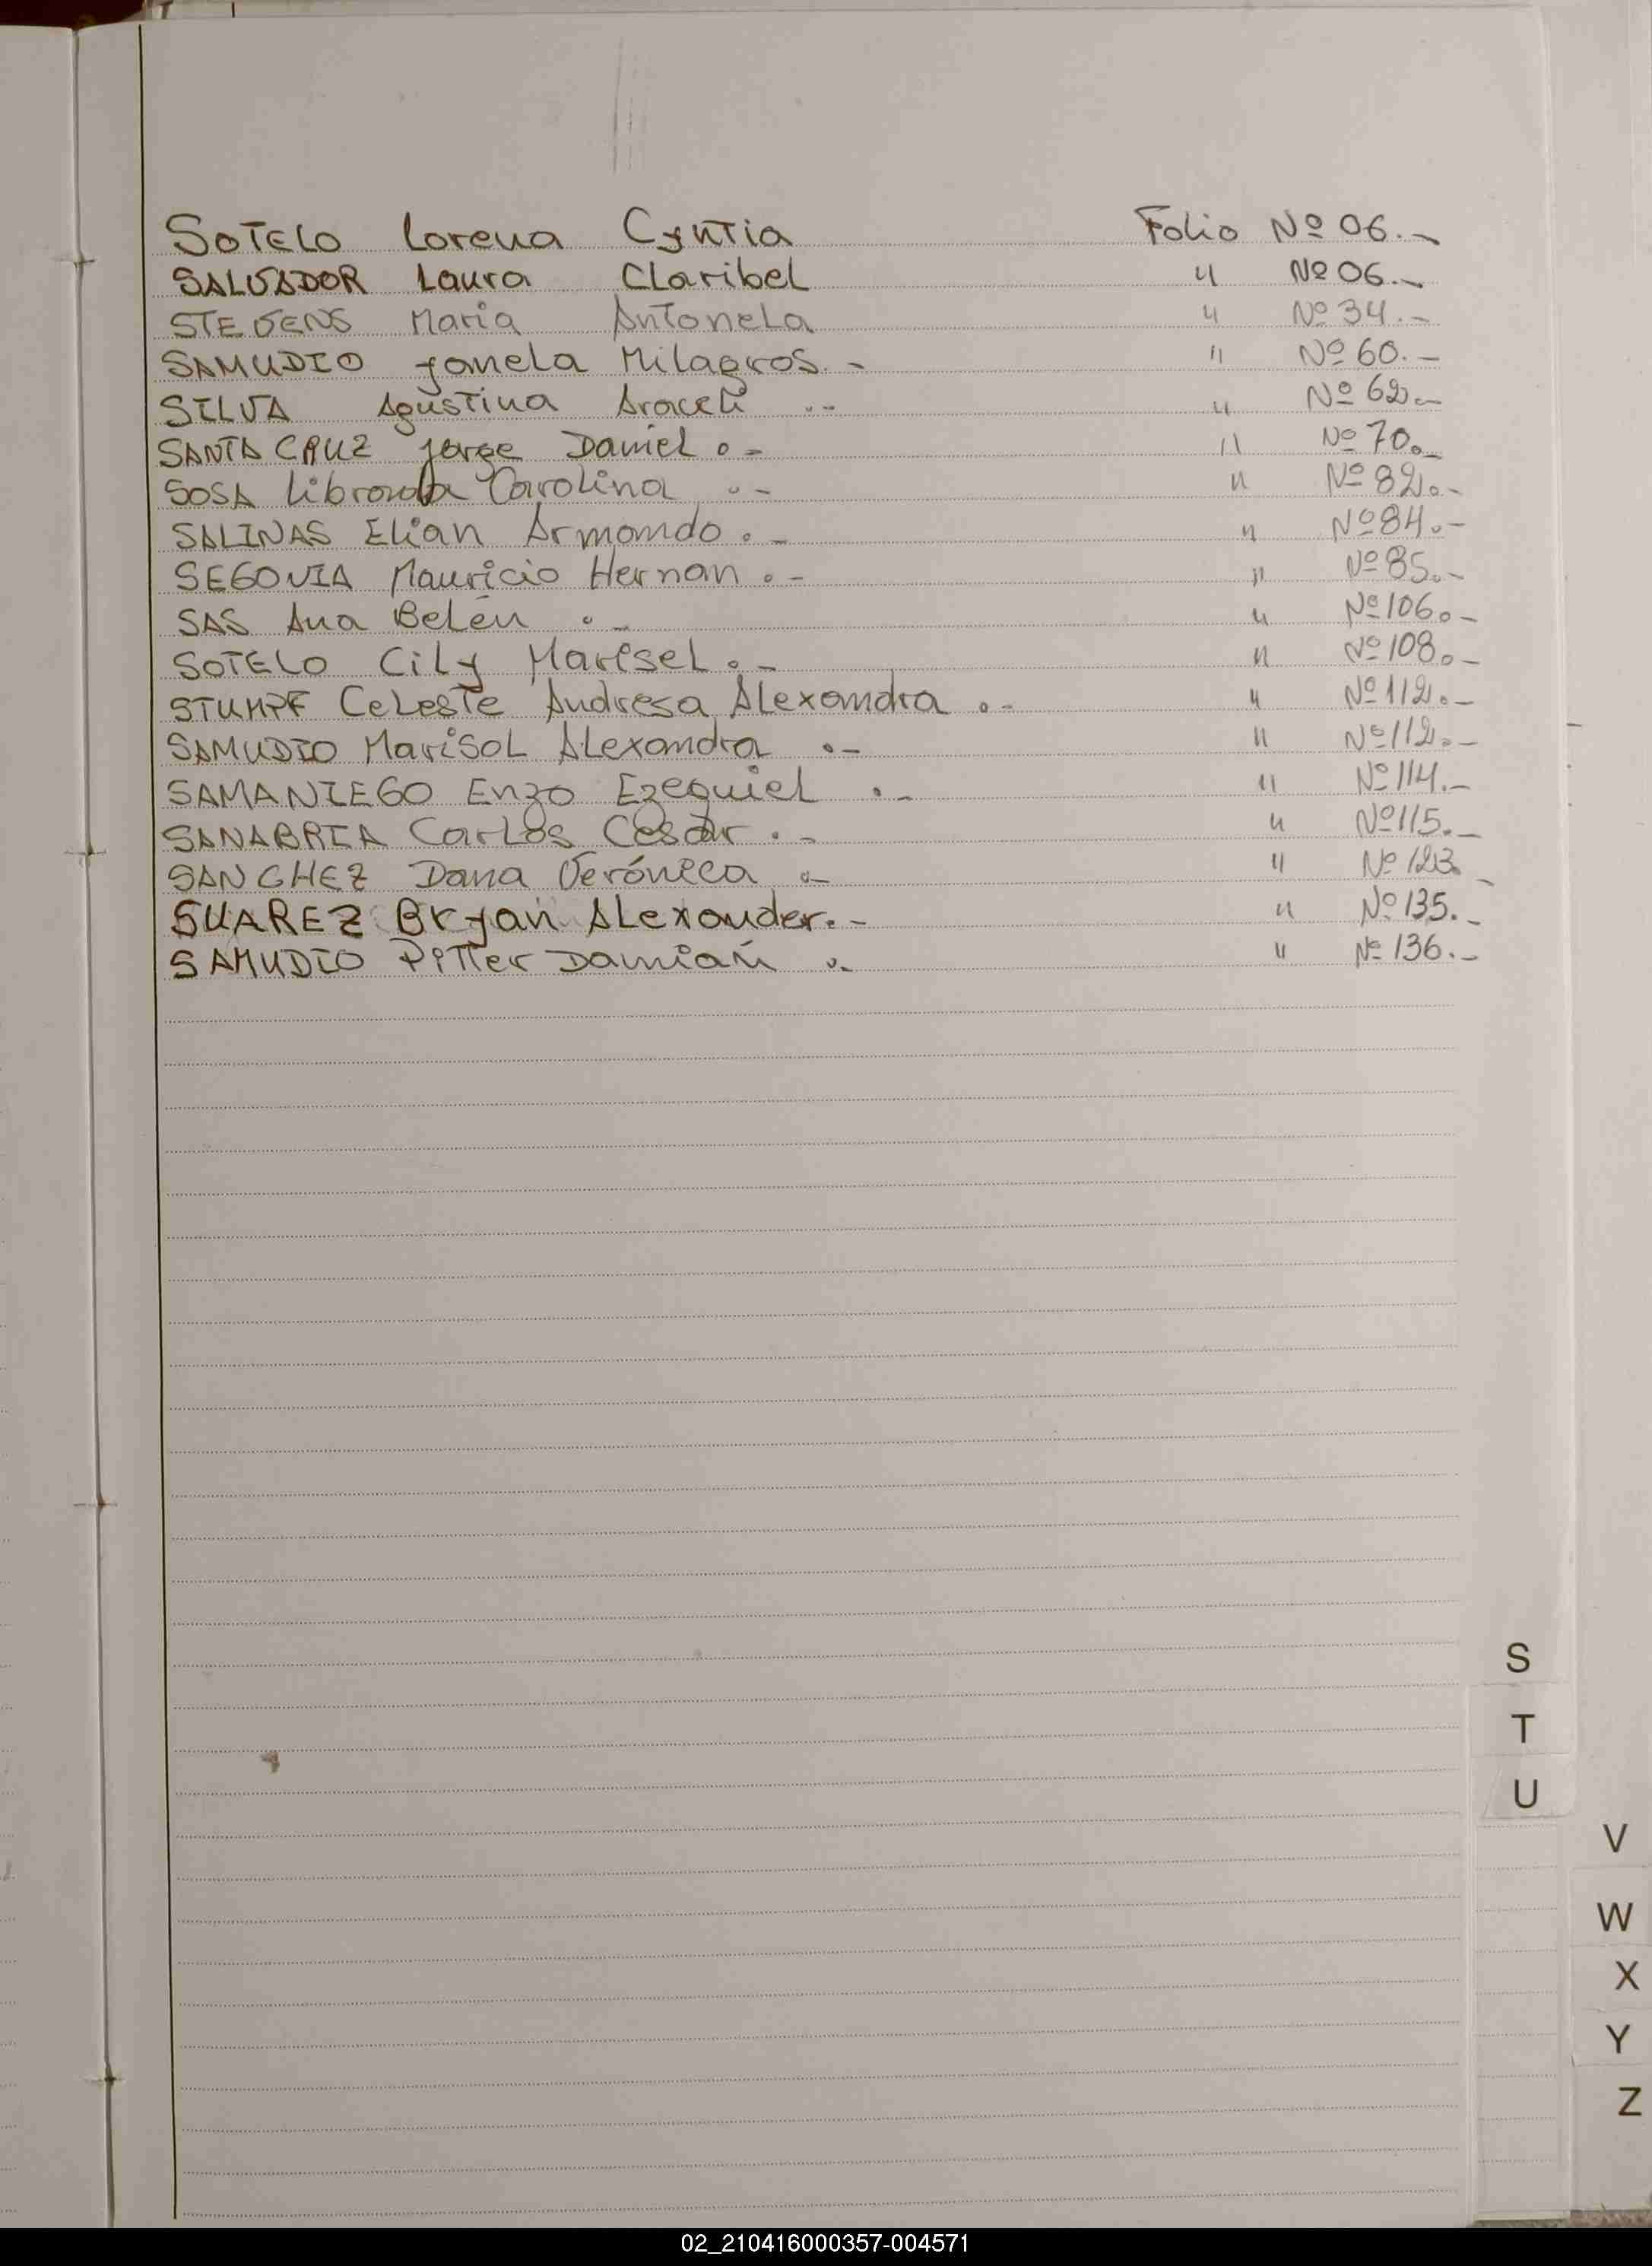 SOTELO Lorena Cyntia Folio Nº 06.-
SALVADOR Laura Claribel " Nº 06.-
STEVENS Maria Antonela " Nº 34.-
SAMUDIO Yamela Milagros.- " Nº 60.-
SILVA Agustina Araceli .- " Nº 62.-
SANTA CRUZ Jorge Daniel.- " Nº 70.-
SOSA Librada Carolina .- " Nº 82.-
SALINAS Elian Armando.- " Nº 84.-
SEGOVIA Mauricio Hernan.- " Nº 85.-
SAS Ana Belén .- " Nº 106.-
SOTELO Cily Marisel.- " Nº 108.-
STUMPF Celeste Andresa Alexandra .- " Nº 112.-
SAMUDIO Marisol Alexandra .- " Nº 112.-
SAMANIEGO Enzo Ezequiel .- " Nº 114.-
SANABRIA Carlos Cesar.- " Nº 115.-
SANCHEZ Dana Verónica .- " Nº 123.-
SUAREZ Bryan Alexander.- " Nº 135.-
SAMUDIO Pitter Damian .- " Nº 136.-
S
T
U
V
W
X
Y
Z
02_210416000357-004571